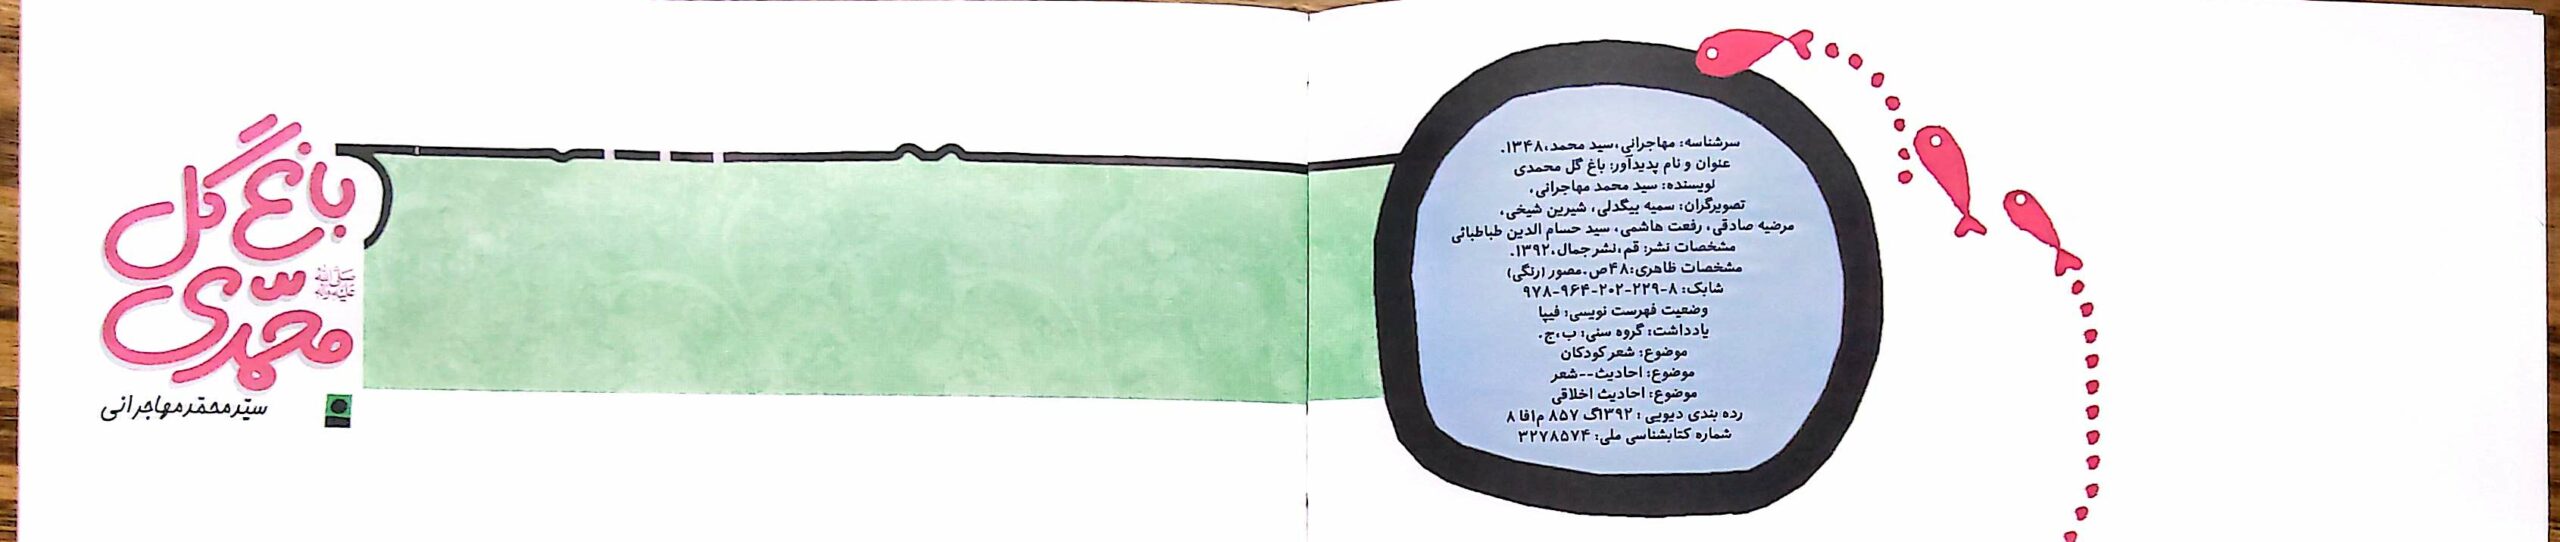 سرشناسه: مهاجرانی، سید محمد، ۱۳۴۸.
عنوان و نام پدیدآور: باغ گل محمدی
نویسنده: سید محمد مهاجرانی،
تصویرگران: سمیه بیگدلی، شیرین شیخی،
مرضیه صادقی، رفعت هاشمی، سید حسام الدین طباطبائی
مشخصات نشر: قم، نشر جمال، ۱۳۹۲.
مشخصات ظاهری: ۴۸ ص. مصور (رنگی)
شابک: ۸-۲۲۹-۲۰۲-۹۶۴-۹۷۸
وضعیت فهرست نویسی: فیپا
یادداشت: گروه سنی: ب، ج.
موضوع: شعر کودکان
موضوع: احادیث--شعر
موضوع: احادیث اخلاقی
رده بندی دیویی: ۱۳۹۲گ ۸۵۷ م۱فا ۸
شماره کتابشناسی ملی: ۳۲۷۸۵۷۴
باغ گل
محمّدی
صلی الله علیه وآله
سیّد محمّد مهاجرانی